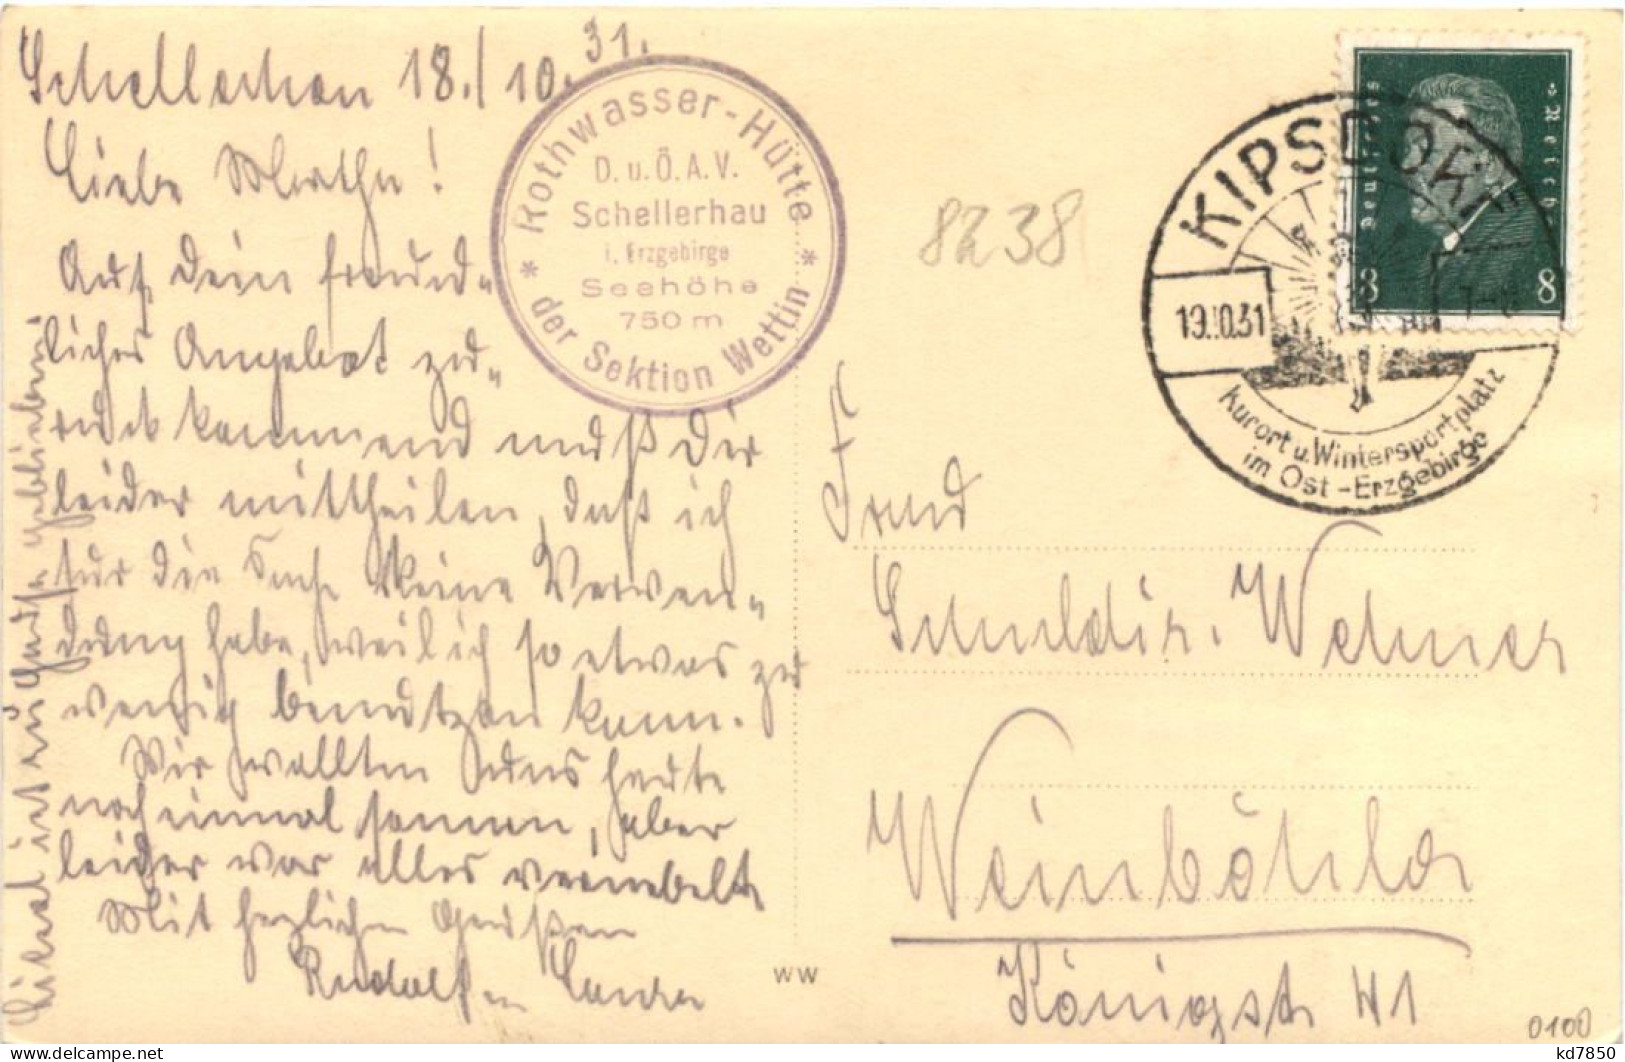 Schellerhau 18./10. 31.
Liebe Marthe!
Auf Dein freund-
liches Angebot zu-
rück kommend muß Dir
leider mittheilen, daß ich
für die Sache keine Verwen-
dung habe, weil ich so etwas zu
wenig benützen kann.
Wir wollten uns heute
noch einmal sonnen, aber
leider war alles vernebelt
Mit herzlichen Grüßen
Rudolf
Liesel ist zu Hause geblieben
Rothwasser-Hütte
D. u. Ö. A. V.
Schellerhau
i. Erzgebirge
Seehöhe
750 m
* der Sektion Wettin *
8238
Deutsches Reich
8 8
KIPSDORF
19.10.31
Kurort u. Wintersportplatz
im Ost-Erzgebirge
Schuldir. Wehner
Weinböhla
Königstr. 41
WW
0100
kd7850